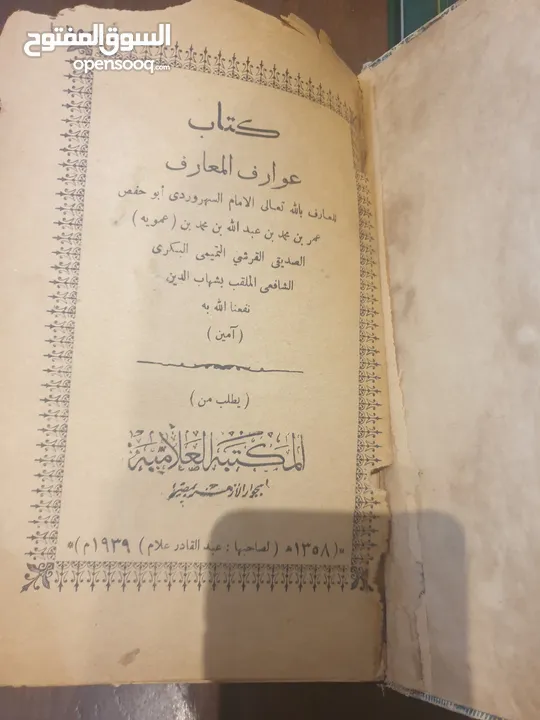 السوق المفتوح
opensooq.com
كتاب
عوارف المعارف
للعارف بالله تعالى الامام السهروردى أبو حفص
عمر بن محمد بن عبد الله بن محمد بن ( عمويه )
الصديقى القرشي التميمى البكرى
الشافعى الملقب بشهاب الدين
نفعنا الله به
( آمين )
( يطلب من )
المكتبة العلامية
بجوار الأزهر بمصر
( ١٣٥٨ هـ ( لصاحبها : عبد القادر علام ) ١٩٣٩ م )